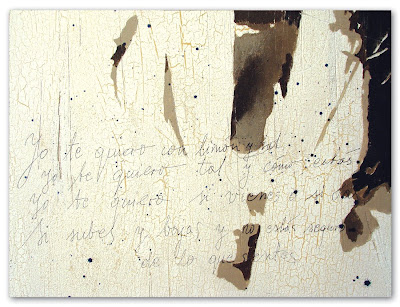 Yo te quiero con limón y sal
Yo te quiero tal y como estás
Yo te quiero si vienes o si
Si subes y bajas y no estás seguro
de lo que sientes